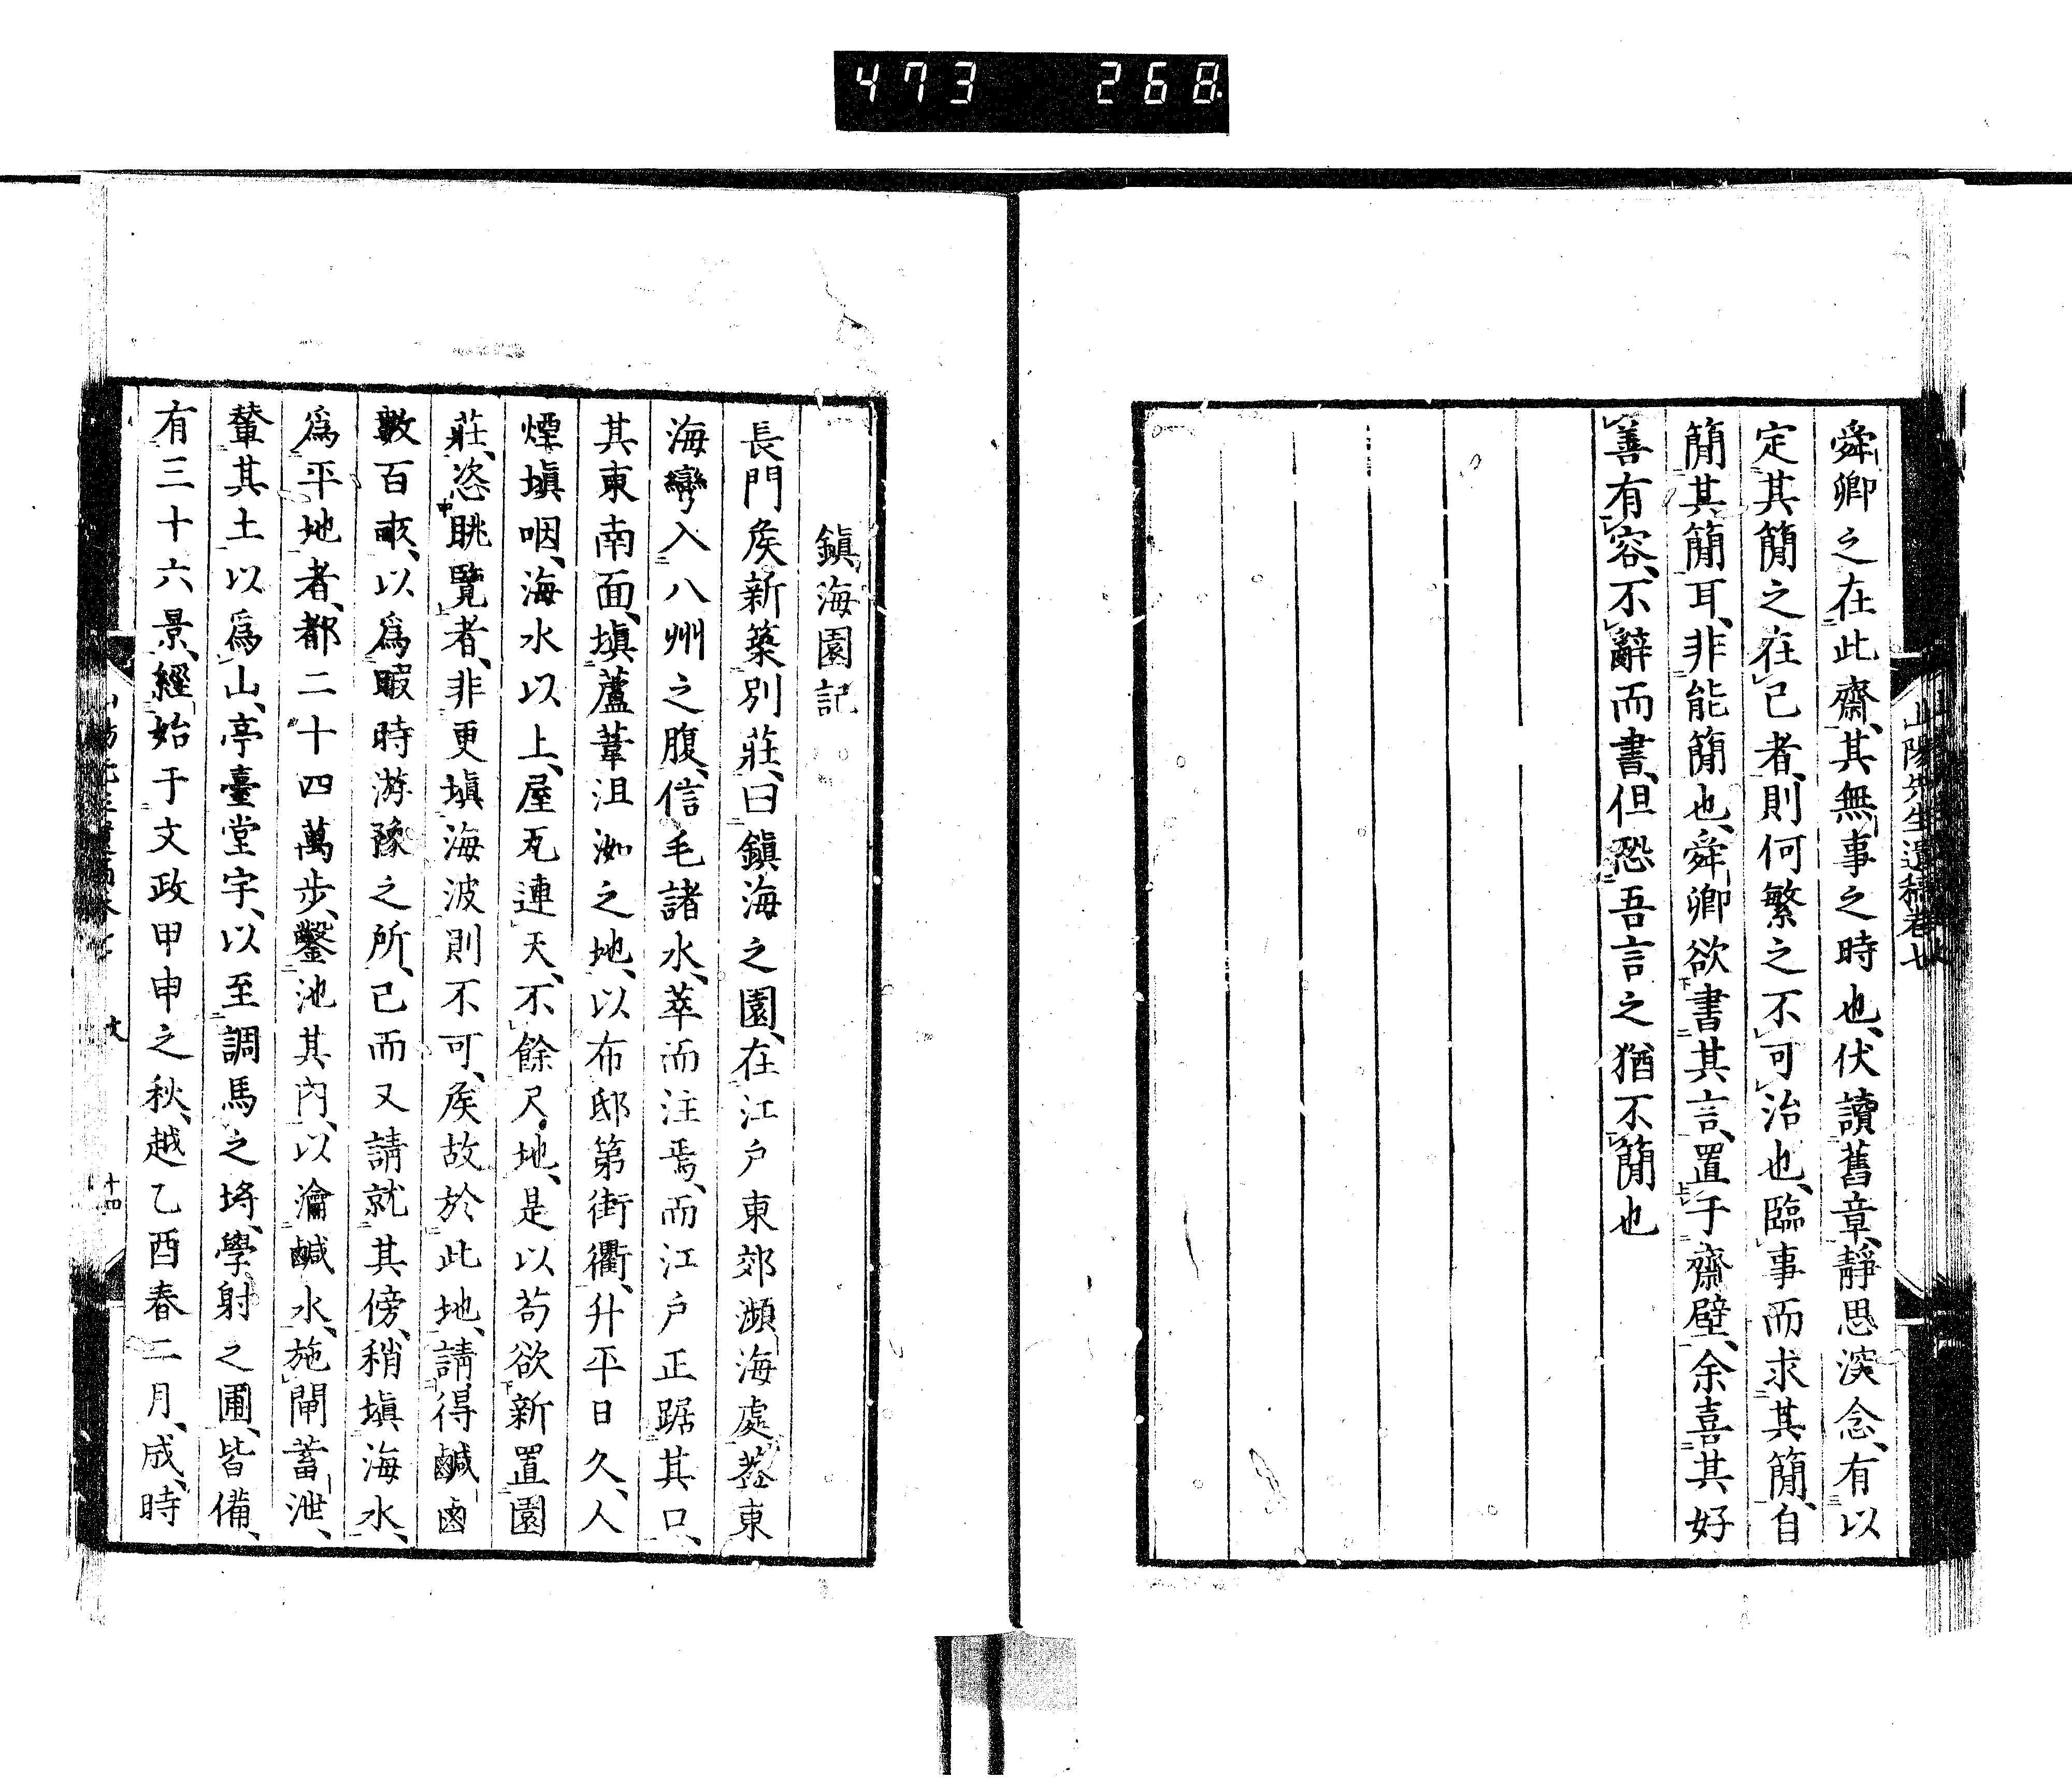 473 268
山陽先生遺稿卷七
舜卿之在此齋、其無事之時也、伏讀舊章、靜思深念、有以
定其簡之在己者、則何繁之不可治也、臨事而求其簡、自
簡其簡耳、非能簡也、舜卿欲書其言、置于齋壁、余喜其好
善有容、不辭而書、但恐吾言之猶不簡也
鎭海園記
長門矦新築別莊、曰鎭海之園、在江戶東郊瀕海處、葢東
海彎入八州之腹、信毛諸水、萃而注焉、而江戶正踞其口、
其東南面、塡蘆葦沮洳之地、以布邸第街衢、升平日久、人
煙塡咽、海水以上、屋瓦連天、不餘尺地、是以苟欲新置園
莊、恣眺覽者、非更塡海波則不可、矦故於此地、請得鹹鹵
數百畞、以爲暇時游豫之所、已而又請就其傍、稍塡海水、
爲平地者、都二十四萬步、鑿池其內、以瀹鹹水、施閘蓄泄、
輦其土以爲山、亭臺堂宇、以至調馬之埓、學射之圃、皆備、
有三十六景、經始于文政甲申之秋、越乙酉春二月、成、時
文
十四